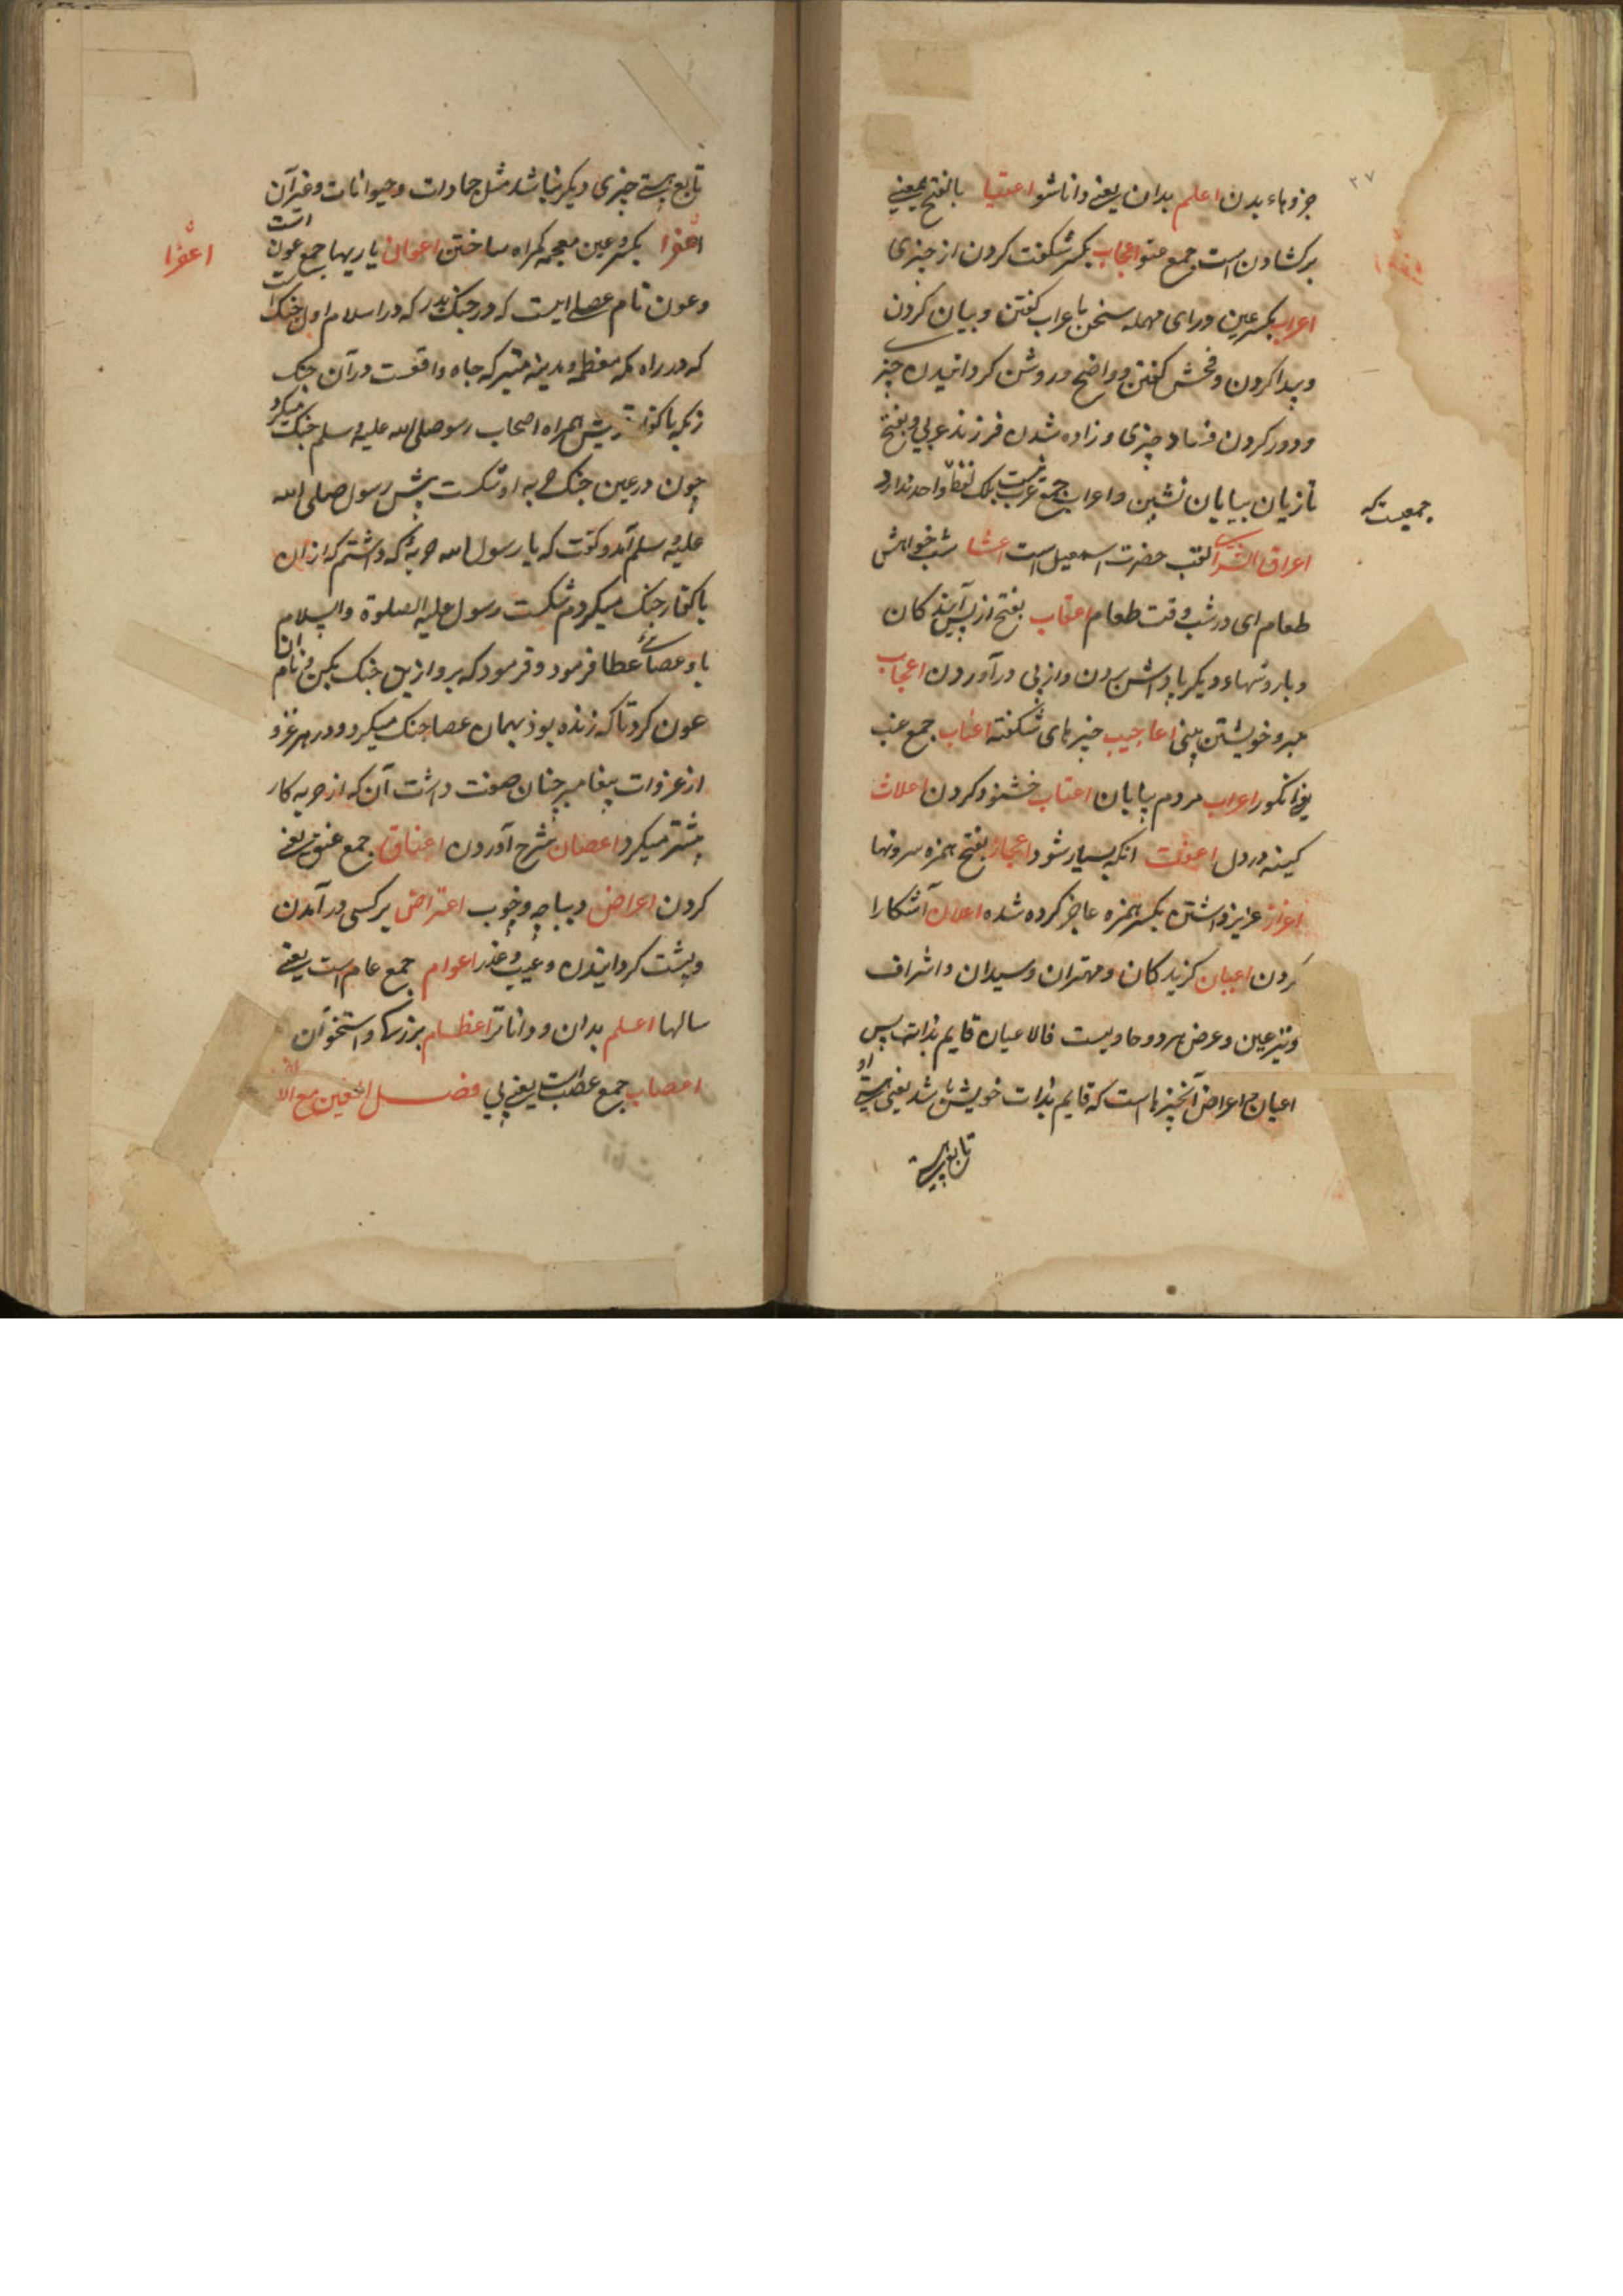 ۳۷
جزوهاء بدن اعلم بدان یعنے دانا شو اعتیا بالفتح بمعنے
برکشادن است جمع عنو اعجاب بکسر شکفت کردن از چیزی
اعراب بکسر عین ورای مهمله سخن باعراب کفتن و بیان کردن
وپیدا کردن و فحش کفتن و واضح و روشن کردانیدن چیز
ودور کردن فساد چیزی و زاده شدن فرزند عربی و بفتح
تازیان بیابان نشین و اعراب جمع عرب نیست بلک لفظا واحد ندارد
جمعیست که
اعراق الثرا لقب حضرت اسمعیل است اعشا شب خوارش
طعام ای در شب وقت طعام اعقاب بفتح از پس آیندکان
و دیکر پاداش بردن واز پی درآوردن اعجاب
خویشتن بینی اعاجیب چیزهای شکفته اعناب جمع عنب
یعے انکور اعراب مردم بیابان اعتاب خشنود کردن اعلات
کینه در دل انکه بسیار شود اعجاز بفتح همزه سرونها
اعزاز عزیز داشتن بکسر همزه عاجز کرده شده اعلان آشکارا
کردن اعیان کزیدکان و مهتران وسیدان و اشراف
ونیز عین وعرض هردو حاویست فالاعیان قایم بذاته پس
اعیان و اعراض آنچیزها است که قایم بذات خویش باشد یعنی هستے او
تابع هستے
تابع هستے چیزی دیکر نباشد مثل جمادات و حیوانات وغیر آن است
اغوا بکسر وعین معجمه کمراه ساختن اعوان یاریها جمع عون
اغوا
وعون نام عصاے است که در جنک بدر که در اسلام اول جنک است
که در راه مکه معظمه و مدینه متبرکه جاه واقعست در آن جنک
باکفار قریش همراه اصحاب رسول صلی الله علیه وسلم جنک میکرد
چون در عین جنک حربه او شکست پیش رسول صلی الله
علیه وسلم آمد و کفت که یا رسول الله حربهٔ که داشتم که ازان
باکفار جنک میکردم شکست رسول علیه الصلوة والسلام
باو عصاے عطا فرمود و فرمود که برو ازین جنک بکن و نام ان
عون کرد تا که زنده بود بهمان عصا جنک میکرد و در هر غزو
از غزوات پیغامبر چنان صفت داشت آن که از حربه کار
بیشتر میکرد اعصان شرح آوردن اعناق جمع عنق یعنے
کردن اعراض دیباچه وخوب اعتراض برکسی در آمدن
وپشت کردانیدن وعیب و عذر اعوام جمع عام است یعنے
سالها اعلم بدان و داناتر اعظام بزرکها واستخوان
اعصاب جمع عصب است یعنے پی فصل الغین مع الالف